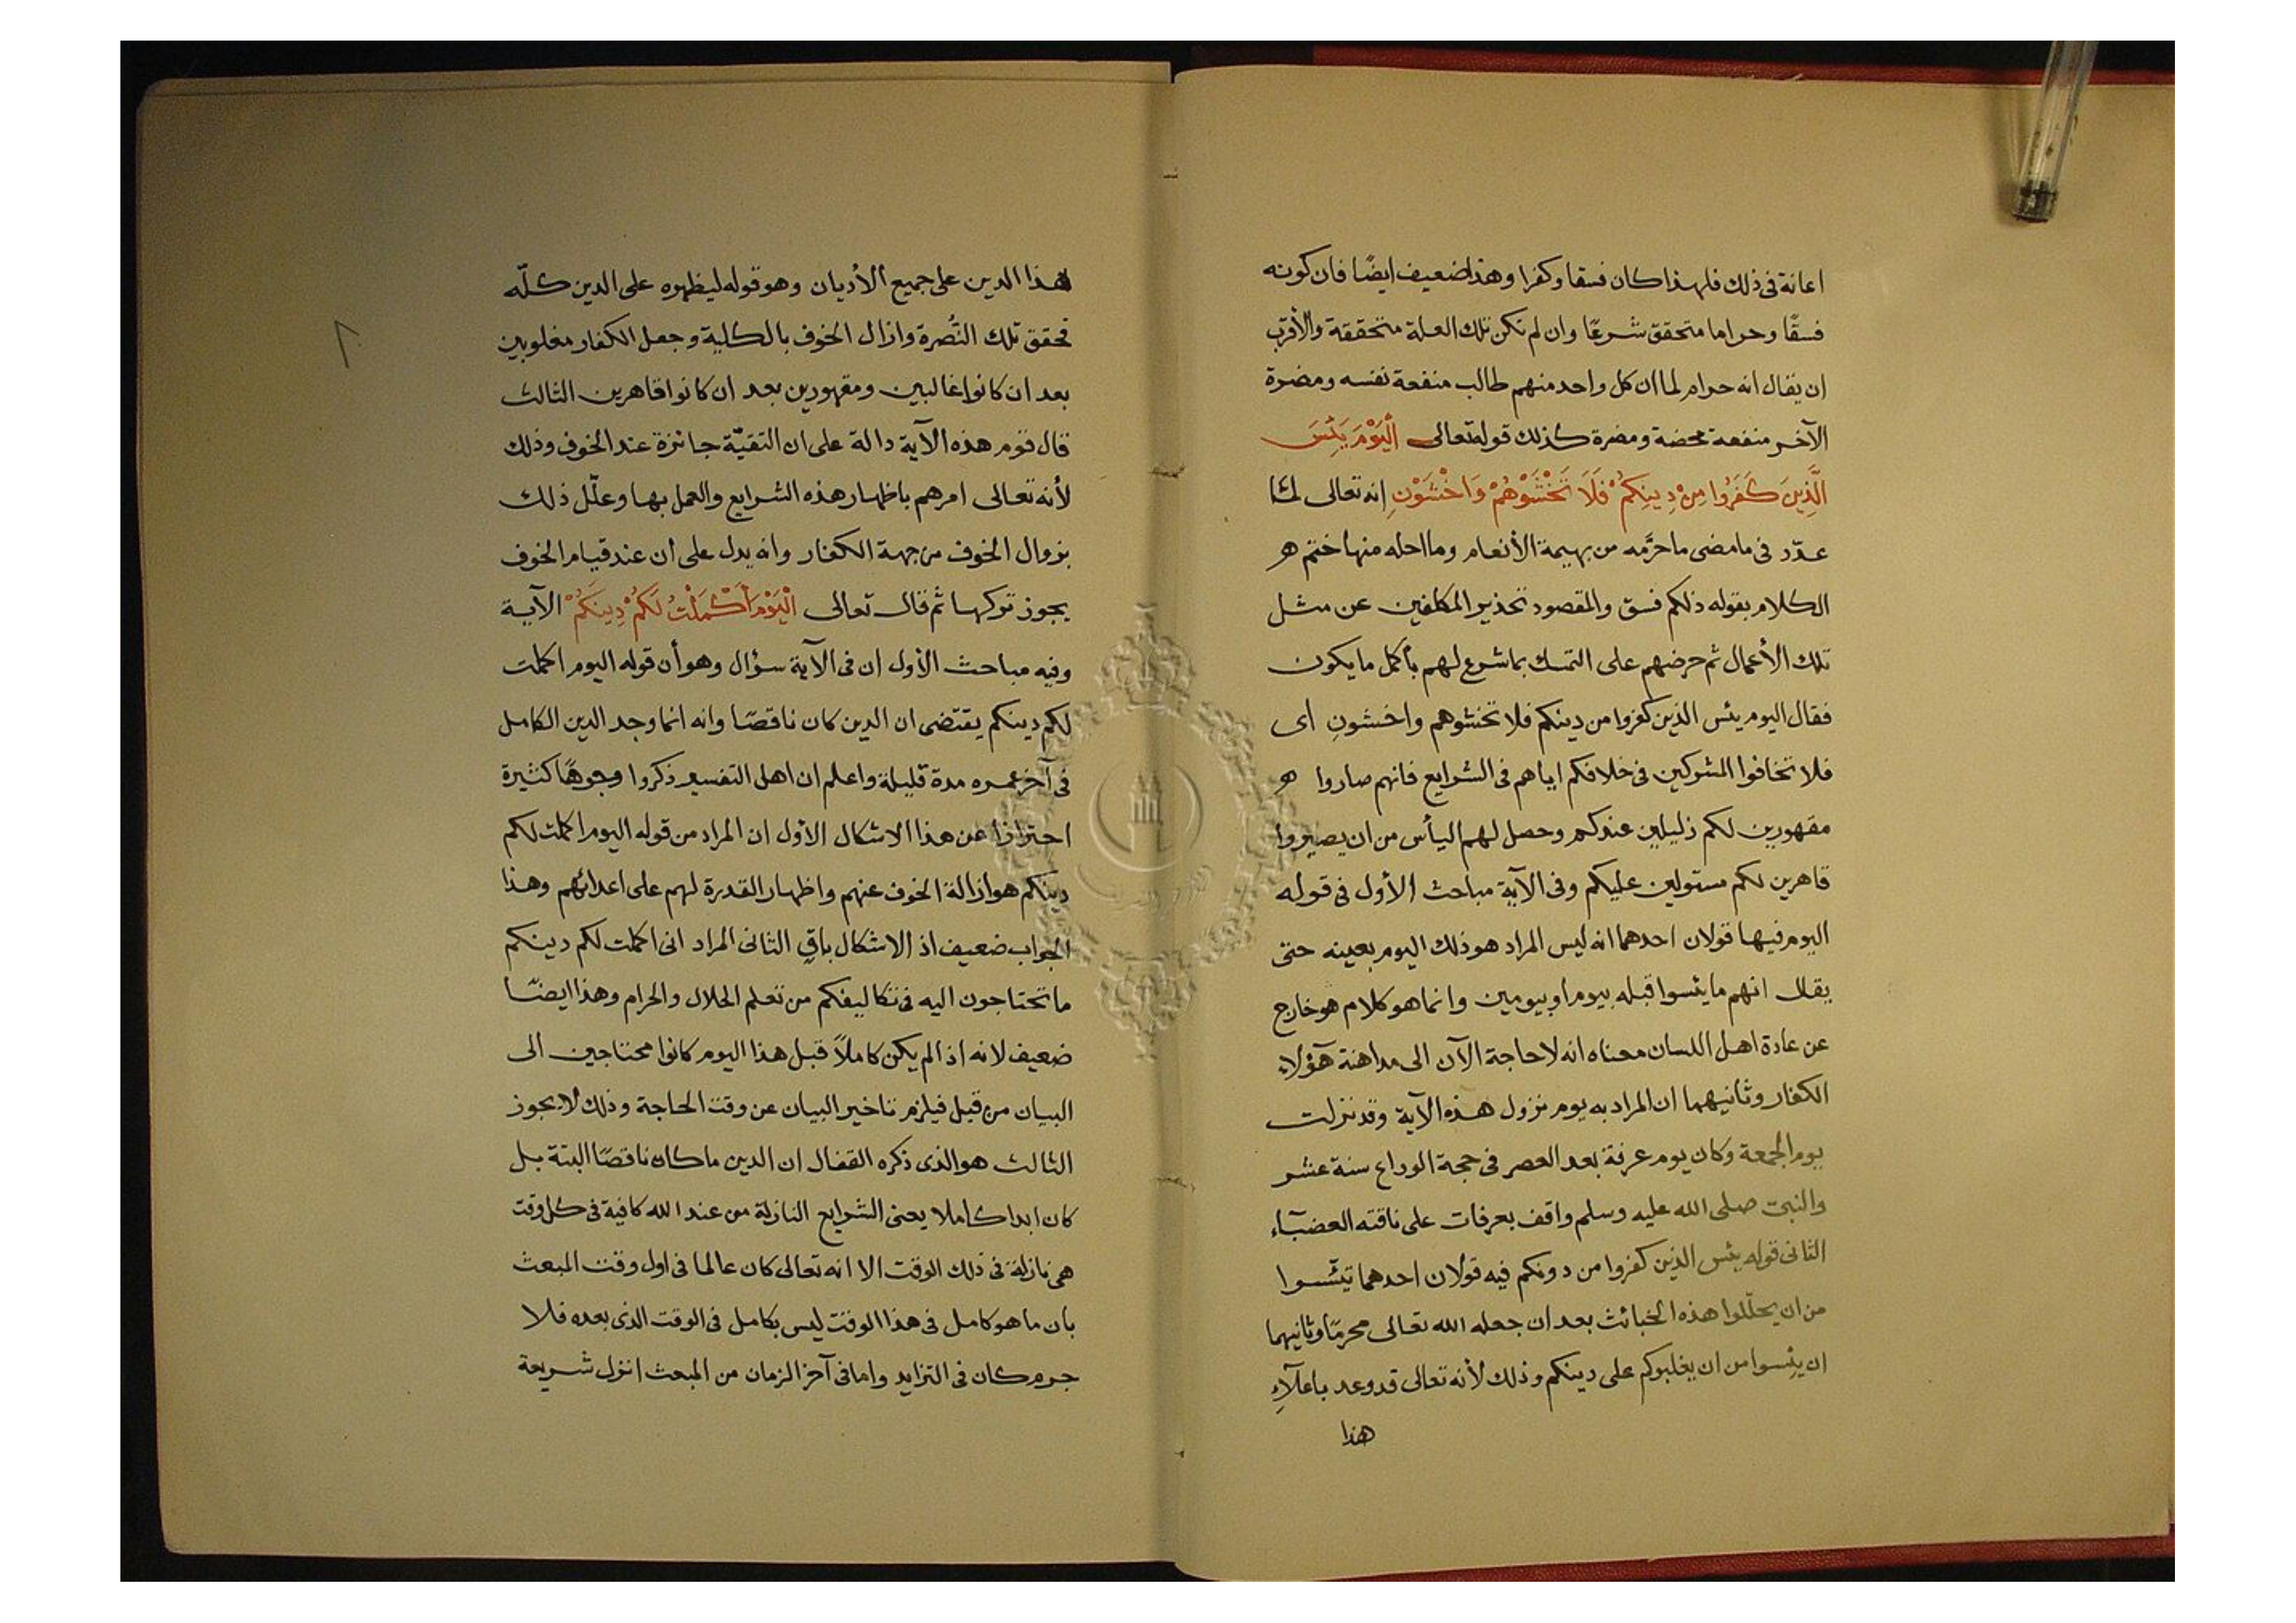 اعانة فى ذلك فلهذا كان فسقا وكفرا وهذا ضعيف ايضًا فان كونه
فسقًا وحراما متحقق شرعًا وان لم تكن تلك العلة متحققة والأقرب
ان يقال انه حرام لما ان كل واحد منهم طالب منفعة نفسه ومضرة
الآخر منفعة محضة ومضرة كذلك قوله تعالى اَلْيَوْمَ يَئِسَ
الَّذِينَ كَفَرُوا مِنْ دِينِكُمْ فَلَا تَخْشَوْهُمْ وَاخْشَوْنِ انه تعالى لمّا
عدّد فى ما مضى ما حرّمه من بهيمة الأنعام وما احله منها ختم
الكلام بقوله ذلكم فسق والمقصود تحذير المكلفين عن مثل
تلك الأعمال ثم حرضهم على التمسك بما شرع لهم بأكمل ما يكون
فقال اليوم يئس الذين كفروا من دينكم فلا تخشوهم واخشونِ اى
فلا تخافوا المشركين فى خلافكم اياهم فى الشرايع فانهم صاروا
مقهورين لكم ذليلين عندكم وحصل لهم اليأس من ان يصيروا
قاهرين لكم مستولين عليكم وفى الآية مباحث الأول فى قوله
اليوم فيها قولان احدهما انه ليس المراد هو ذلك اليوم بعينه حتى
يقال انهم ما يئسوا قبله بيوم او بيومين وانما هو كلام هو خارج
عن عادة اهل اللسان معناه انه لا حاجة الآن الى مداهنة هؤلاء
الكفار وثانيهما ان المراد به يوم نزول هذه الآية وقد نزلت
يوم الجمعة وكان يوم عرفة بعد العصر فى حجة الوداع سنة عشر
والنبى صلى الله عليه وسلم واقف بعرفات على ناقته العضباء
الثانى قوله يئس الذين كفروا من دونكم فيه قولان احدهما تيئسوا
من ان يحلّلوا هذه الخبائث بعد ان جعله الله تعالى محرمًا وثانيهما
ان يئسوا من ان يغلبوكم على دينكم وذلك لأنه تعالى قد وعد باعلآءِ
هذا
هذا الدين على جميع الأديان وهو قوله ليظهره على الدين كلّه
تحقق تلك النُّصرة وازال الخوف بالكلية وجعل الكفار مغلوبين
بعد ان كانوا غالبين ومقهورين بعد ان كانوا قاهرين الثالث
قال قوم هذه الآية دالة على ان التقيّة جائزة عند الخوف وذلك
لأنه تعالى امرهم باظهار هذه الشرايع والعمل بها وعلّل ذلك
بزوال الخوف من جهة الكفار وانه يدل على ان عند قيام الخوف
يجوز تركها ثم قال تعالى اَلْيَوْمَ اَكْمَلْتُ لَكُمْ دِينَكُمْ الآية
وفيه مباحث الأول ان فى الآية سؤال وهو أن قوله اليوم اكملت
لكم دينكم يقتضى ان الدين كان ناقصًا وانه انما وجد الدين الكامل
فى آخر عمره مدة قليلة واعلم ان اهل التفسير ذكروا وجوهًا كثيرة
احترازا عن هذا الاشكال الأول ان المراد من قوله اليوم اكملت لكم
دينكم هو ازالة الخوف عنهم واظهار القدرة لهم على اعدائهم وهذا
الجواب ضعيف اذ الاشكال باقٍ الثانى المراد انى اكملت لكم دينكم
ما تحتاجون اليه فى تكاليفكم من تعلم الحلال والحرام وهذا ايضًا
ضعيف لانه اذا لم يكن كاملاً قبل هذا اليوم كانوا محتاجين الى
البيان من قبل فيلزم تاخير البيان عن وقت الحاجة وذلك لا يجوز
الثالث هو الذى ذكره القفال ان الدين ما كان ناقصًا البتة بل
كان ابدا كاملا يعنى الشرايع النازلة من عند الله كافية فى كل وقت
هى نازلة فى ذلك الوقت الا انه تعالى كان عالما فى اول وقت المبعث
بان ما هو كامل فى هذا الوقت ليس بكامل فى الوقت الذى بعده فلا
جرم كان فى التزايد واما فى آخر الزمان من المبعث انزل شريعة